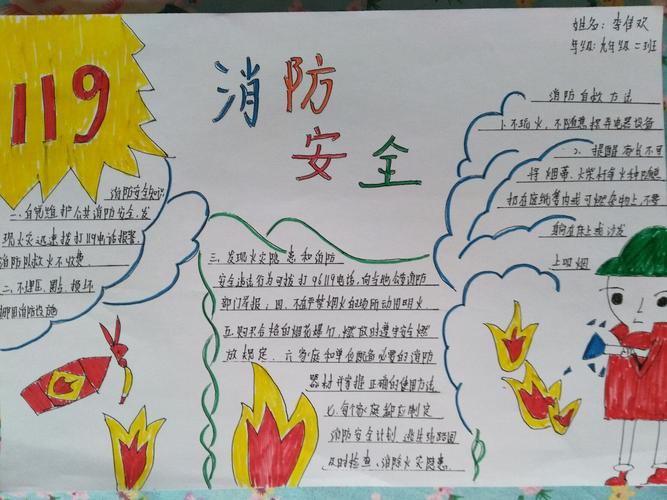 119
消防
安全
姓名：李佳欢
年级：九年级二班
消防安全知识
一、自觉维护公共消防安全，发
现火灾迅速拨打119电话报警，
消防队救火不收费
二、不埋压、圈占、损坏
挪用消防设施
三、发现火灾隐患和消防
安全违法行为可拨打96119电话，向当地公安消防
部门举报；四、不在严禁烟火的场所动用明火
五、购买合格的烟花爆竹，燃放时遵守安全燃
放规定、六、家庭和单位配备必要的消防
器材并掌握正确的使用方法
七、每个家庭都应制定
消防安全计划、逃生路线图
及时检查、消除火灾隐患
消防自救方法
1、不玩火、不随意摆弄电器设备
2、提醒家长不可
将烟蒂、火柴杆等火种随意
扔在废纸篓内或可燃杂物上，不要
躺在床上或沙发
上吸烟